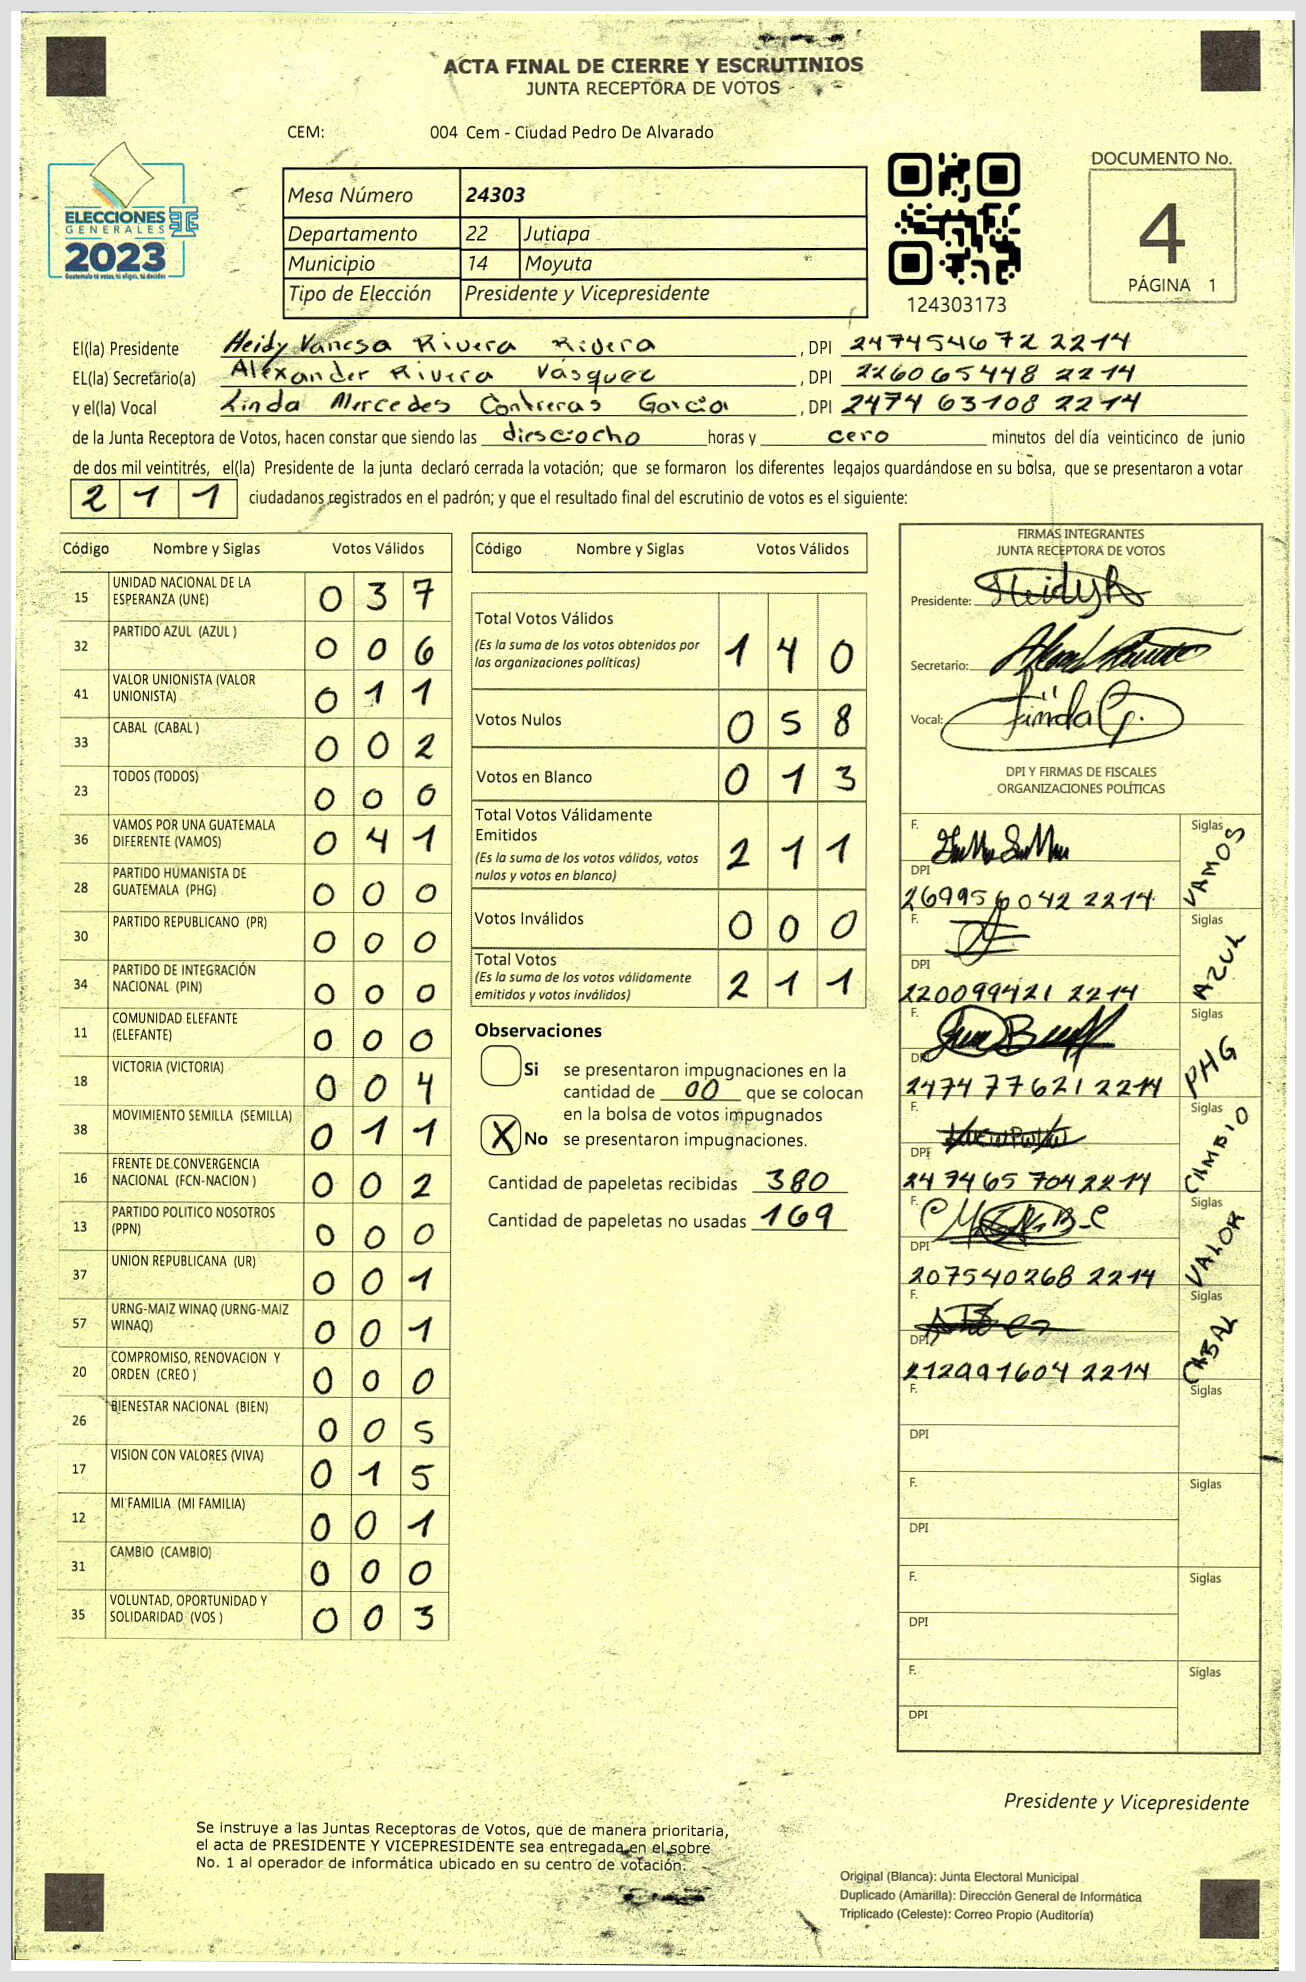 ACTA FINAL DE CIERRE Y ESCRUTINIOS
JUNTA RECEPTORA DE VOTOS
CEM: 004 Cem - Ciudad Pedro De Alvarado
ELECCIONES
GENERALES
2023
Guatemala tú votas, tú eliges, tú decides
Mesa Número 24303
Departamento 22 Jutiapa
Municipio 14 Moyuta
Tipo de Elección Presidente y Vicepresidente
124303173
DOCUMENTO No.
4
PÁGINA 1
El(la) Presidente Heidy Vanesa Rivera Rivera , DPI 247454672 2214
EL(la) Secretario(a) Alexander Rivera Vásquez , DPI 226065448 2214
y el(la) Vocal Linda Mercedes Contreras García , DPI 2474 63108 2214
de la Junta Receptora de Votos, hacen constar que siendo las diesciocho horas y cero minutos del día veinticinco de junio
de dos mil veintitrés, el(la) Presidente de la junta declaró cerrada la votación; que se formaron los diferentes legajos guardándose en su bolsa, que se presentaron a votar
2 1 1 ciudadanos registrados en el padrón; y que el resultado final del escrutinio de votos es el siguiente:
Código Nombre y Siglas Votos Válidos
15 UNIDAD NACIONAL DE LA ESPERANZA (UNE) 0 3 7
32 PARTIDO AZUL (AZUL ) 0 0 6
41 VALOR UNIONISTA (VALOR UNIONISTA) 0 1 1
33 CABAL (CABAL ) 0 0 2
23 TODOS (TODOS) 0 0 0
36 VAMOS POR UNA GUATEMALA DIFERENTE (VAMOS) 0 4 1
28 PARTIDO HUMANISTA DE GUATEMALA (PHG) 0 0 0
30 PARTIDO REPUBLICANO (PR) 0 0 0
34 PARTIDO DE INTEGRACIÓN NACIONAL (PIN) 0 0 0
11 COMUNIDAD ELEFANTE (ELEFANTE) 0 0 0
18 VICTORIA (VICTORIA) 0 0 4
38 MOVIMIENTO SEMILLA (SEMILLA) 0 1 1
16 FRENTE DE CONVERGENCIA NACIONAL (FCN-NACION ) 0 0 2
13 PARTIDO POLITICO NOSOTROS (PPN) 0 0 0
37 UNION REPUBLICANA (UR) 0 0 1
57 URNG-MAIZ WINAQ (URNG-MAIZ WINAQ) 0 0 1
20 COMPROMISO, RENOVACION Y ORDEN (CREO ) 0 0 0
26 BIENESTAR NACIONAL (BIEN) 0 0 5
17 VISION CON VALORES (VIVA) 0 1 5
12 MI FAMILIA (MI FAMILIA) 0 0 1
31 CAMBIO (CAMBIO) 0 0 0
35 VOLUNTAD, OPORTUNIDAD Y SOLIDARIDAD (VOS ) 0 0 3
Código Nombre y Siglas Votos Válidos
Total Votos Válidos
(Es la suma de los votos obtenidos por
las organizaciones políticas) 1 4 0
Votos Nulos 0 5 8
Votos en Blanco 0 1 3
Total Votos Válidamente
Emitidos
(Es la suma de los votos válidos, votos
nulos y votos en blanco) 2 1 1
Votos Inválidos 0 0 0
Total Votos
(Es la suma de los votos válidamente
emitidos y votos inválidos) 2 1 1
Observaciones
Si se presentaron impugnaciones en la
cantidad de 00 que se colocan
en la bolsa de votos impugnados
X No se presentaron impugnaciones.
Cantidad de papeletas recibidas 380
Cantidad de papeletas no usadas 169
FIRMAS INTEGRANTES
JUNTA RECEPTORA DE VOTOS
Presidente: Heidy R
Secretario:
Vocal: Linda G.
DPI Y FIRMAS DE FISCALES
ORGANIZACIONES POLÍTICAS
F. Siglas VAMOS
DPI
269956042 2214
F. Siglas AZUL
DPI
220099421 2214
F. Siglas PHG
DPI
2474 77621 2214
F. Siglas CAMBIO
DPI
24 7465 704 2214
F. Siglas VALOR
DPI
207540268 2214
F. Siglas CABAL
DPI
212991604 2214
F. Siglas
DPI
F. Siglas
DPI
F. Siglas
DPI
F. Siglas
DPI
Presidente y Vicepresidente
Se instruye a las Juntas Receptoras de Votos, que de manera prioritaria,
el acta de PRESIDENTE Y VICEPRESIDENTE sea entregada en el sobre
No. 1 al operador de informática ubicado en su centro de votación.
Original (Blanca): Junta Electoral Municipal
Duplicado (Amarilla): Dirección General de Informática
Triplicado (Celeste): Correo Propio (Auditoría)